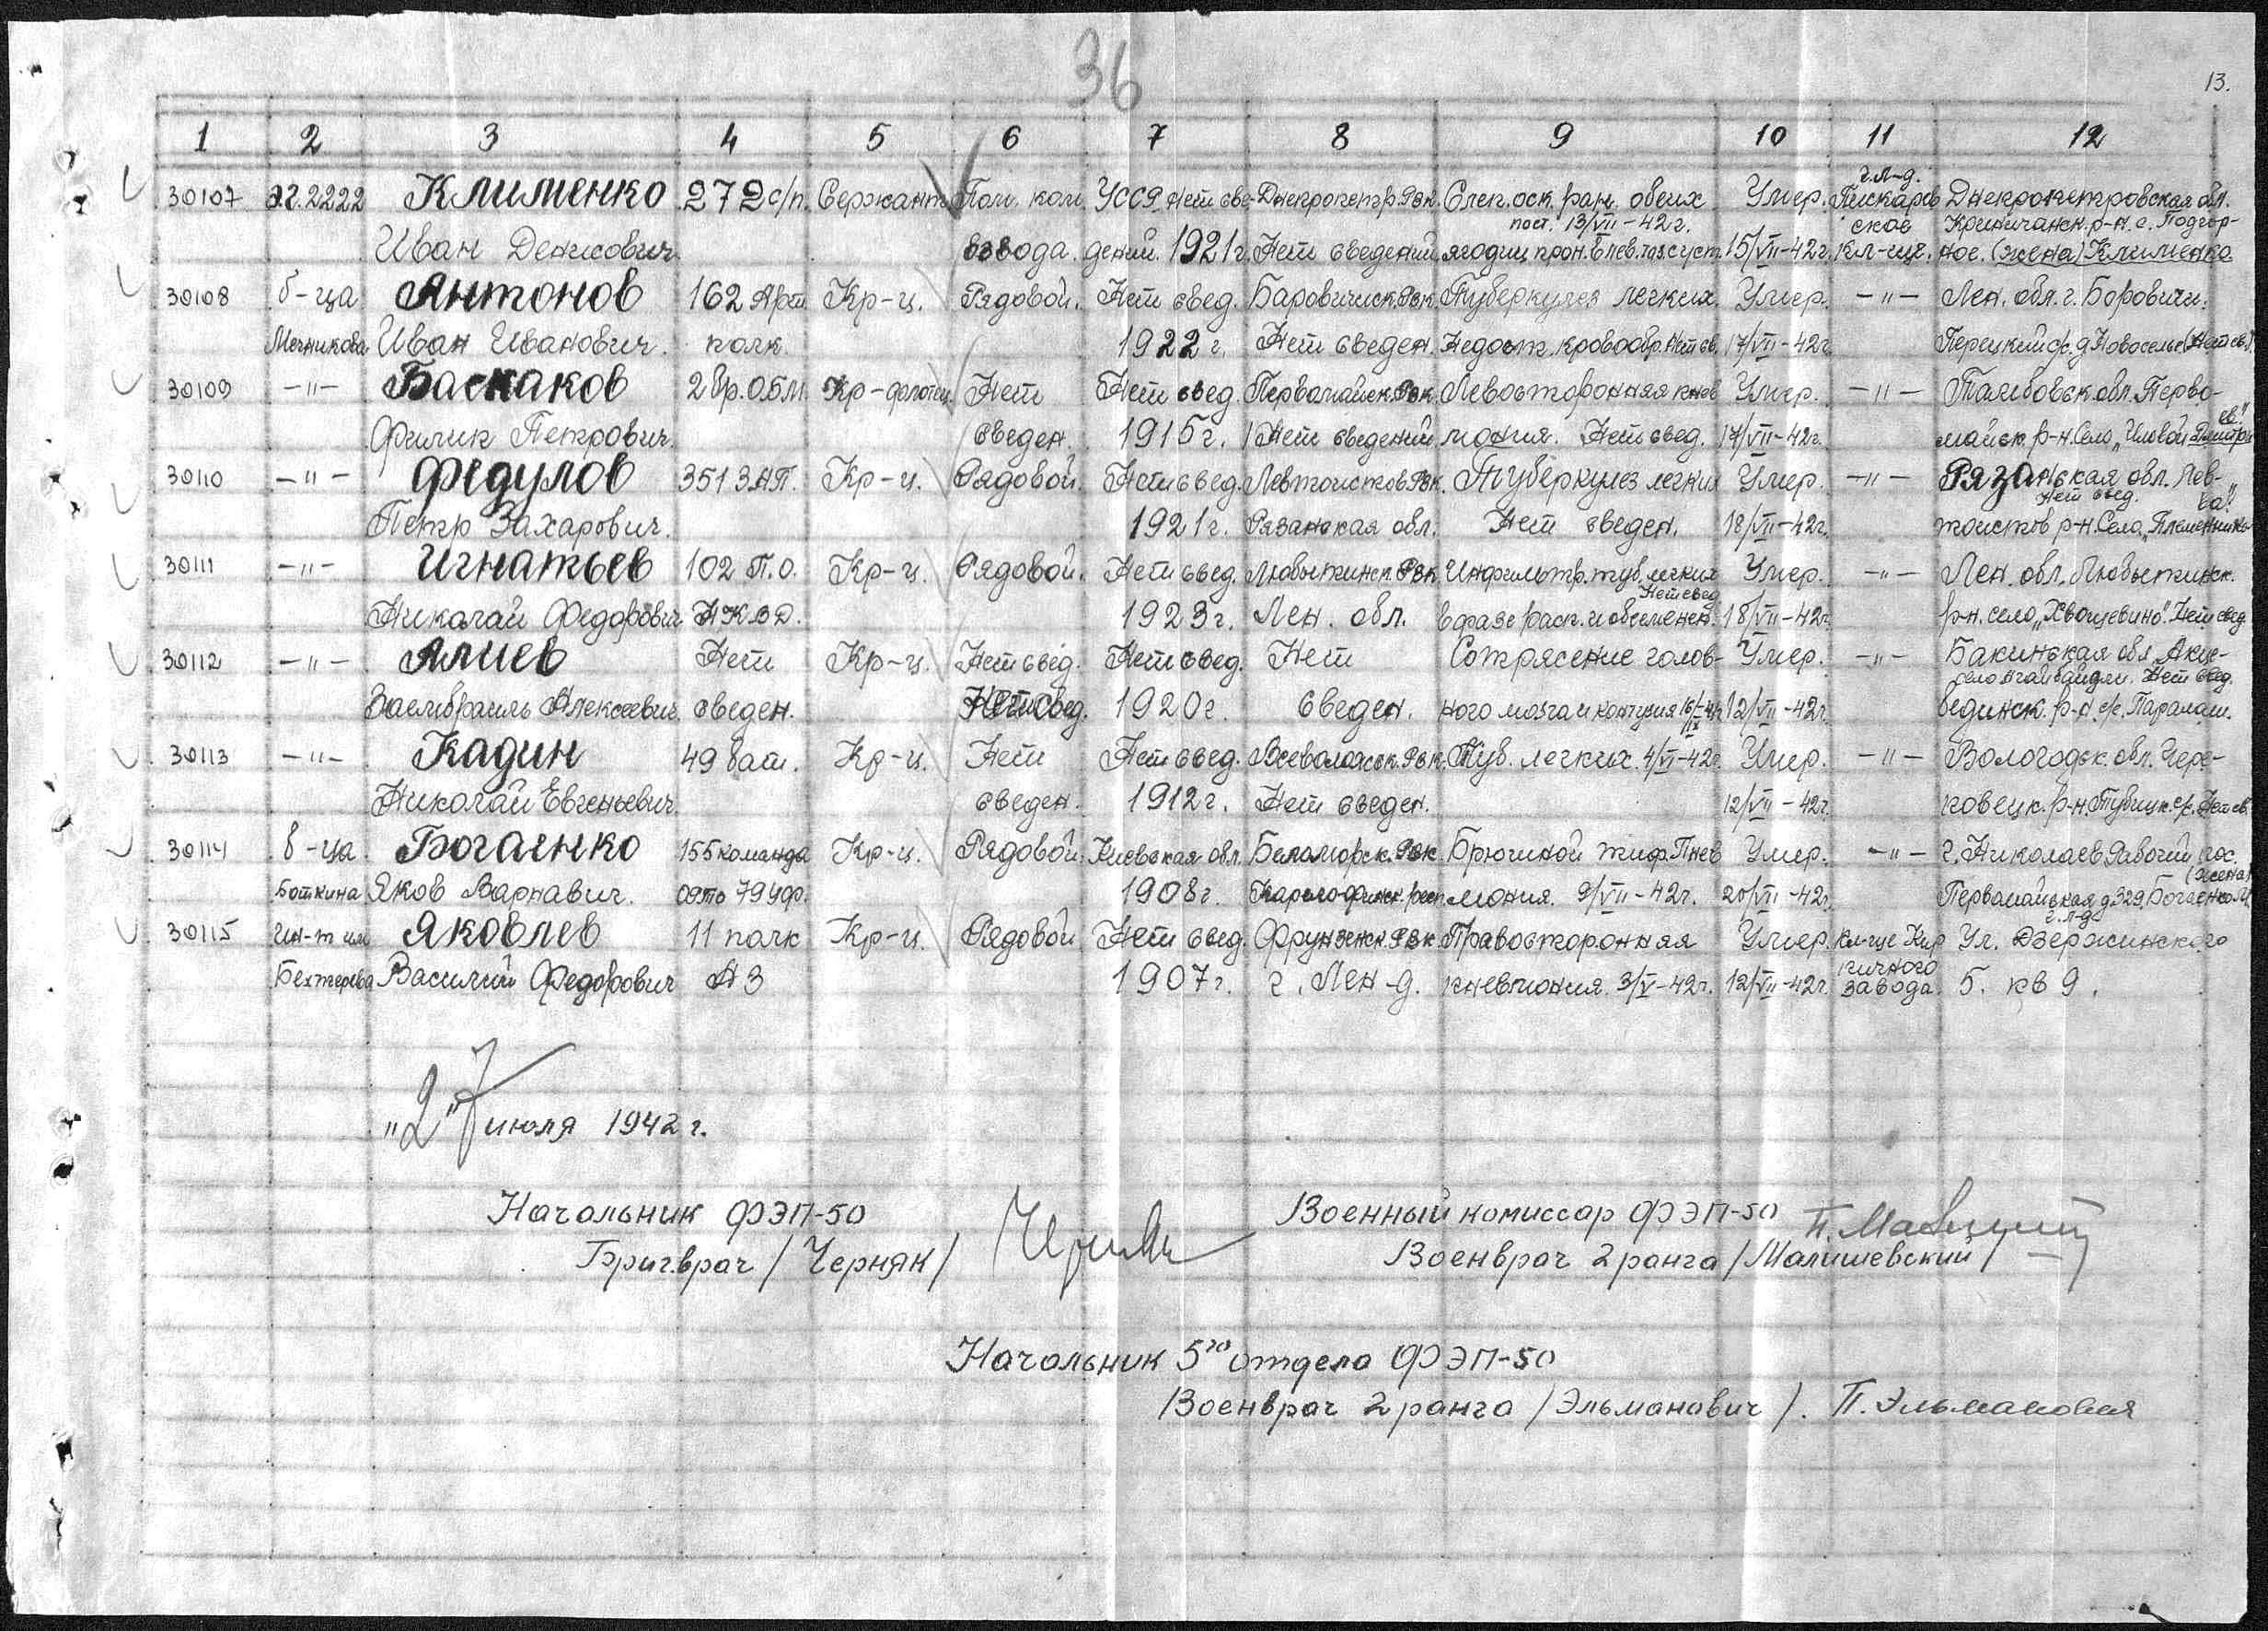 36
13.
1 2 3 4 5 6 7 8 9 10 11 12
30107 э.г. 2222 Клименко 272 с/п. Сержант Пом. ком. УССР. Нет све- Днепропетр. Рвк. Слеп. оск. ран. обеих Умер. г. Л-д. Пискарев Днепропетровская обл.
пост. 13/VII-42г. ское Криничанск. р-н. с. Подгор-
Иван Денисович взвода. дений. 1921г. Нет сведений ягодиц прон. в лев. таз. суст. 15/VII-42г. кл-ще. ное. (жена) Клименко
30108 б-ца Антонов 162 Арт. Кр-ц. Рядовой. Нет свед. Баровичск. Рвк. Туберкулез легких Умер. -"- Лен. обл. г. Боровичи.
Мечникова Иван Иванович. полк. 1922 г. Нет сведен. Недост. кровообр. Нет св. 17/VII-42г. Перецкий с/с. д. Новоселье (Нет св.)
30109 -"- Баскаков 2 бр. О.Б.М. Кр-флотец. Нет Нет свед. Первомайск. Рвк. Левосторонняя пнев Умер. -"- Тамбовск. обл. Перво-
Филип Петрович. сведен. 1915г. Нет сведений мония. Нет свед. 17/VII-42г. майск. р-н. Село „Иловай Дмитри
ев."
30110 -"- Федулов 351 ЗАП. Кр-ц. Рядовой. Нет свед. Левтолстов Рвк. Туберкулез легких Умер. -"- Рязанская обл. Лев-
Нет свед. ва."
Петр Захарович. 1921г. Рязанская обл. Нет сведен. 18/VII-42г. толстов р-н. Село „Племеннико
30111 -"- Игнатьев 102 П.О. Кр-ц. Рядовой. Нет свед. Любытинск. Рвк Инфильтр. туб. легких Умер. -"- Лен. обл. Любытинск.
Нет свед
Николай Федорович Н К В Д. 1923г. Лен. обл. в фазе расп. и обсеменен. 18/VII-42г. р-н. село „Хвощевино". Нет свед.
30112 -"- Алиев Нет Кр-ц. Нет свед. Нет свед. Нет Сотрясение голов- Умер. -"- Бакинская обл. Акц-
Нет свед.
Заелибраиль Алексеевич. сведен. Нет свед. 1920г. сведен. ного мозга и контузия 12/VII-42г. вединск. р-н. с/с. Паралам.
30113 -"- Кадин 49 бат. Кр-ц. Нет Нет свед. Всеволожск. Рвк. Туб. легких. 4/VI-42г. Умер. -"- Вологодск. обл. Чере-
Николай Евгеньевич. сведен. 1912г. Нет сведен. 12/VII-42г. повецк. р-н. Тубицк. с/с. Нет св.
30114 б-ца Богаенко 155 команда Кр-ц. Рядовой. Киевская обл. Беломорск. Рвк Брюшной тиф. Пнев Умер. -"- г. Николаев, Рабочий пос.
(жена)
Боткина Яков Варнавич. 79 1908г. Карело-финск. респ. мония. 9/VII-42г. 20/VII-42г. Первомайская д. 329. Богаенко М.
30115 Ин-т им Яковлев 11 полк Кр-ц. Рядовой Нет свед. Фрунзенск. Рвк. Правосторонняя Умер. кл-ще Кир г. Л-д Ул. Дзержинского
Бехтерева Василий Федорович АЗ 1907г. г. Лен-д. пневмония. 3/V-42г. 12/VII-42г. пичного завода. 5. кв 9.
„27" июля 1942 г.
Начальник ФЭП-50 Военный комиссар ФЭП-50
Бриг.врач /Черняк/ Военврач 2 ранга /Малишевский/
Начальник 5го отдела ФЭП-50
Военврач 2 ранга /Эльманович/. П. Эльманович